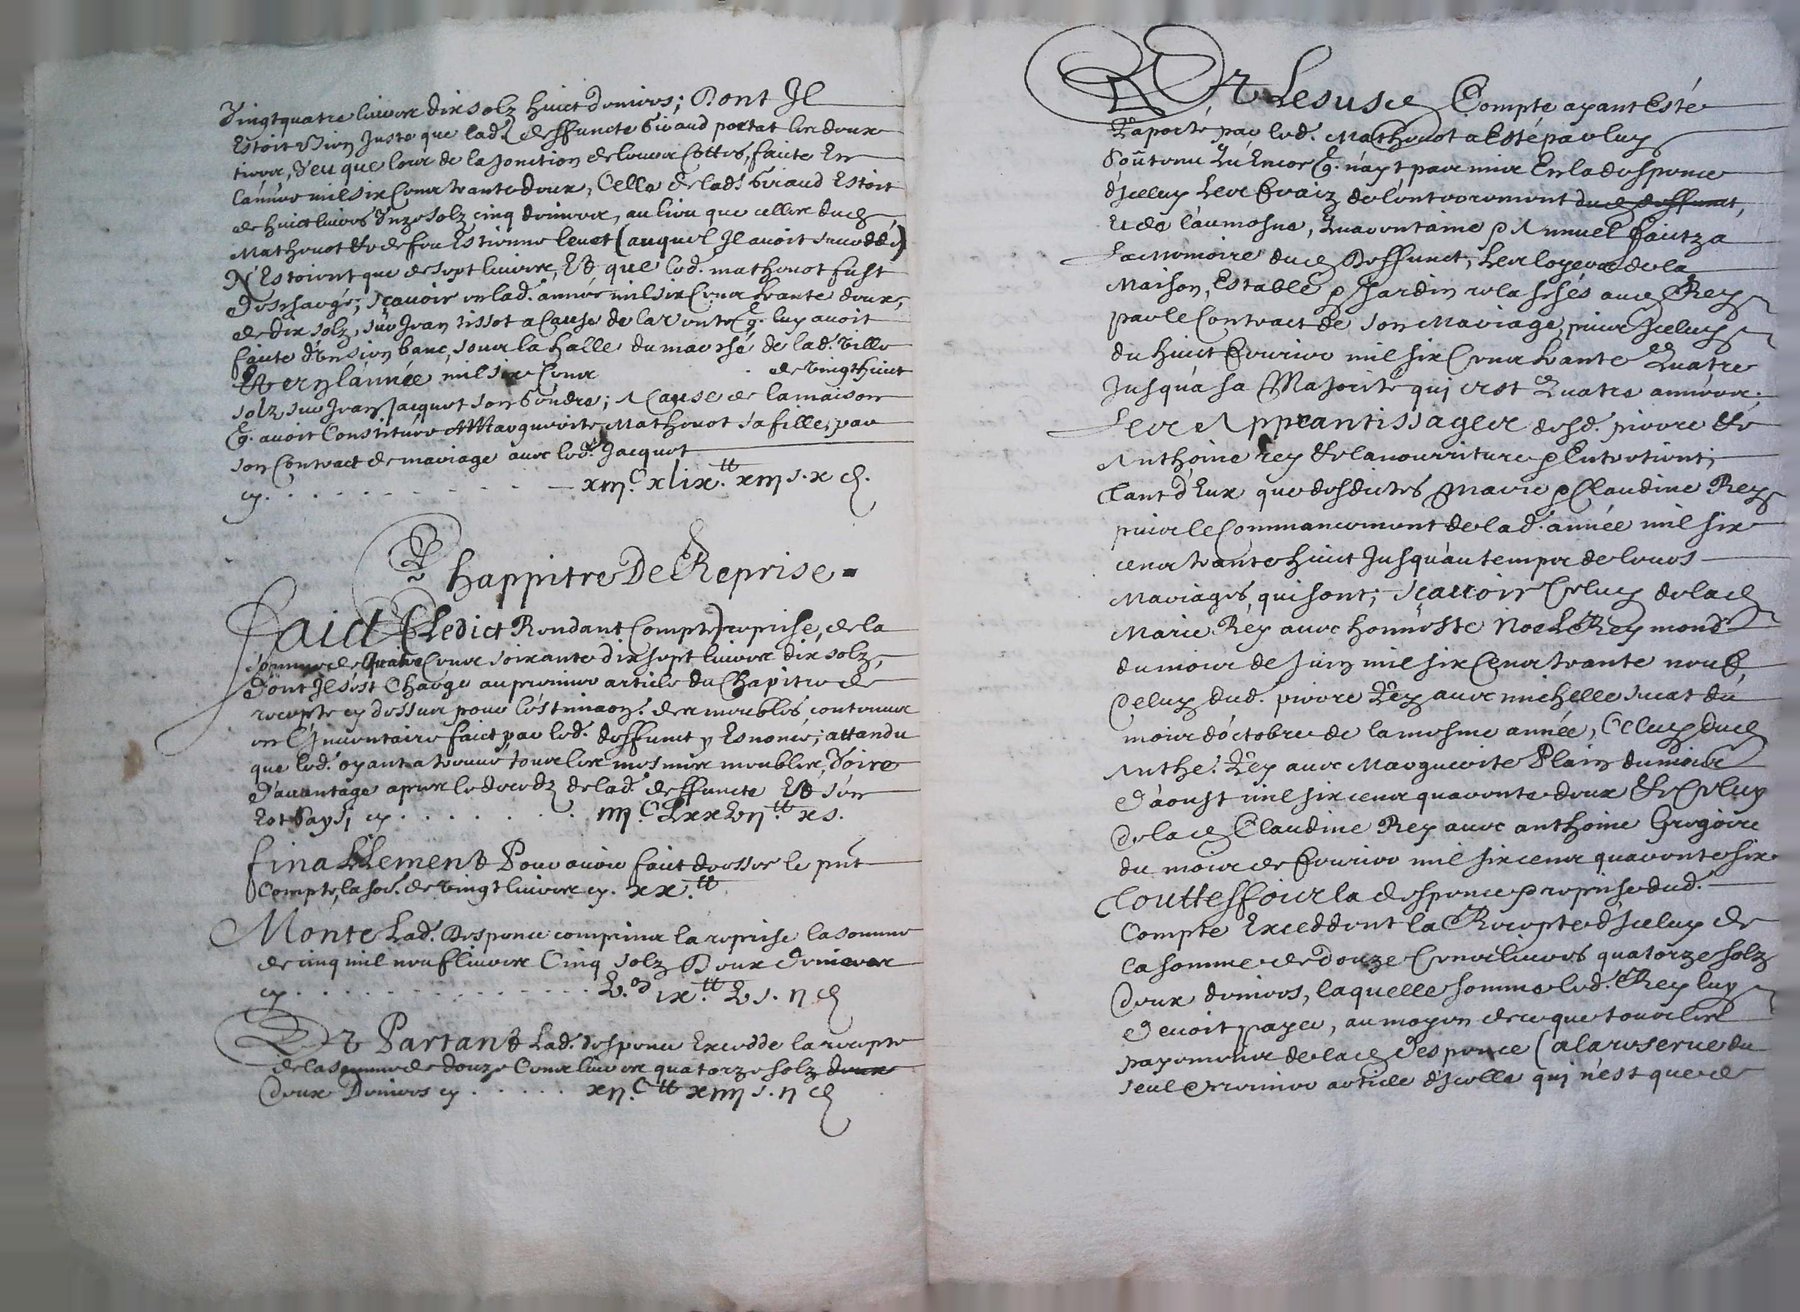 Vingtquatre livres dix solz huict deniers; Dont Il
Estoit bien Juste que lad. deffuncte Giraud portat les deux
tiers, Veu que lors de la Jonction de leurs cottes, faicte En
l'année mil six Cens trante deux, Celle de lad. Giraud Estoit
de huict livres Unze solz cinq deniers, au lieu que celles dud.
Mathouot & de feu Estienne (auquel Il avoit succeddé)
N'Estoient que de sept livres, Et que led. mathouot fust
deschargé; sçavoir en lad. année mil six Cens trante deux,
de dix solz, sur Jean tissot a Cause de la Vente q. luy avoit
faicte d'Un sien banc, soubz la halle du marché de lad. Ville
Et en l'année mil six Cens de vingt huict
solz sur Jean Jacquot son Gendre; A Cause de la maison
q. avoit Constituée A Marguerite Mathouot sa fille, par
son Contract de mariage avec led. Jacquot
cy. xiij.C xlix.tt xiij s. x d.
Chappitre De Reprise
Faict (Ledict Rendant Compte) reprise, de la
somme de quatre Cens soixante dix sept livres dix solz,
dont Il s'est Chargé au premier article du Chapitre de
recepte cy dessus pour l'estimaon. des meubles contenus
en l'Inventaire faict par led. deffunct y Enoncé; attandu
que led. oyant a trouvé tous les mesmes meubles, Voire
d'avantage apres le decedz de lad. deffuncte Et s'en
Est saysi cy. iiij.C Lxxvij.tt x s.
Finallement Pour avoir faict dresser le pnt
Compte, la so. de vingt livres cy. xx.tt
Monte Lad. Despence comprins la reprise la somme
de cinq mil neuf livres Cinq solz Deux deniers
cy V.m ix.tt V s. ij d.
Et Partant Lad. despence Excedde la recepte
de la somme de douze Cens livres quatorze solz deux
deux Deniers cy xij.C tt xiiij s. ij d.
Et Le susd. Compte ayant Esté
Raporté par led. Mathouot a Esté par luy
soutenu Qu'Encor q. n'ayt pas mis En la despence
d'Iceluy Les fraiz de l'enterrement dud. deffunct,
de l'aumosne, Quarentaine & Annuel faictz a
La memoire dud. Deffunct, Les loyers de la
Maison, Estable & Jardin relaschés aud. Rey
par le Contract de son Mariage, puis Iceluy
du huict febvrier mil six Cens trante Quatre
Jusqu'a sa Majorité qui est Quatre années.
Les Apprantissages desd. pierre &
Anthoine rey & la nourriture & Entretient,
tant d'Eux que desdictes Marie & Claudine Rey
puis le Commancement de lad. année mil six
cens trante huict Jusqu'au temps de leurs
Mariages, qui sont; sçavoir Celuy de lad.
Marie Rey avec honneste Noel Reymond
du mois de Juin mil six Cens trante neuf,
Celuy dud. pierre Rey avec michelle sucat du
mois d'octobre de la mesme année, Celuy dud.
Anthe. Rey avec Marguerite Plain du mois
d'aoust mil six cens quarente deux & Celuy
de lad. Claudine Rey avec anthoine Gregoire
du mois de febvrier mil six cens quarente six
touttesfois la despence & reprise dud.
Compte Exceddent la Recepte d'Iceluy de
la somme de douze Cens livres quatorze solz
deux deniers, laquelle somme led. Rey luy
devoit payer, au moyen de ce que tous les
payemens de lad. despence (a la reserve du
seul premier article d'Icelle qui n'est que de